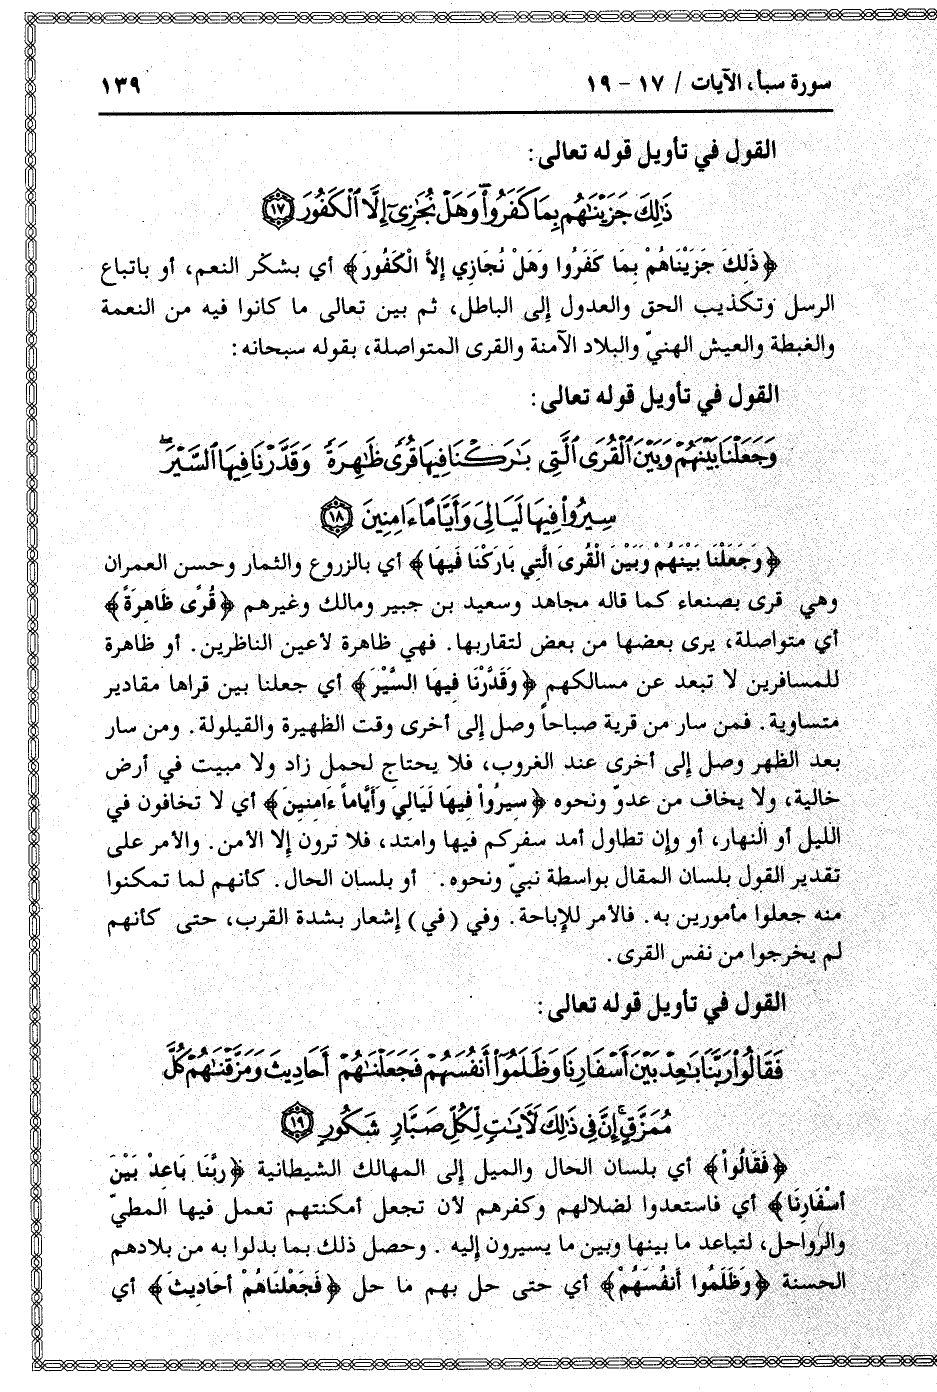 سورة سبأ، الآيات / ١٧ - ١٩ ١٣٩
القول في تأويل قوله تعالى:
ذَٰلِكَ جَزَيْنَٰهُم بِمَا كَفَرُوا۟ ۖ وَهَلْ نُجَٰزِىٓ إِلَّا ٱلْكَفُورَ ١٧
﴿ذَلِكَ جَزَيْنَاهُمْ بِمَا كَفَرُوا وَهَلْ نُجَازِي إلاَّ الْكَفُورَ﴾ أي بشكْر النعم، أو باتباع
الرسل وتكذيب الحق والعدول إلى الباطل، ثم بين تعالى ما كانوا فيه من النعمة
والغبطة والعيش الهنيّ والبلاد الآمنة والقرى المتواصلة، بقوله سبحانه:
القول في تأويل قوله تعالى:
وَجَعَلْنَا بَيْنَهُمْ وَبَيْنَ ٱلْقُرَى ٱلَّتِى بَٰرَكْنَا فِيهَا قُرًى ظَٰهِرَةً وَقَدَّرْنَا فِيهَا ٱلسَّيْرَ ۖ
سِيرُوا۟ فِيهَا لَيَالِىَ وَأَيَّامًا ءَامِنِينَ ١٨
﴿وَجَعَلْنَا بَيْنَهُمْ وَبَيْنَ الْقُرَى الَّتِي بَارَكْنَا فَيهَا﴾ أي بالزروع والثمار وحسن العمران
وهي قرى بصنعاء كما قاله مجاهد وسعيد بن جبير ومالك وغيرهم ﴿قُرًى ظَاهِرَةً﴾
أي متواصلة، يرى بعضها من بعض لتقاربها. فهي ظاهرة لأعين الناظرين. أو ظاهرة
للمسافرين لا تبعد عن مسالكهم ﴿وَقَدَّرْنَا فِيهَا السَّيْرَ﴾ أي جعلنا بين قراها مقادير
متساوية. فمن سار من قرية صباحاً وصل إلى أخرى وقت الظهيرة والقيلولة. ومن سار
بعد الظهر وصل إلى أخرى عند الغروب، فلا يحتاج لحمل زاد ولا مبيت في أرض
خالية، ولا يخاف من عدوّ ونحوه ﴿سيرُواْ فِيهَا لَيَالِيَ وَأَيَّاماً ءَامِنِينَ﴾ أي لا تخافون في
الليل أو النهار، أو وإن تطاول أمد سفركم فيها وامتد، فلا ترون إلا الأمن. والأمر على
تقدير القول بلسان المقال بواسطة نبيّ ونحوه. أو بلسان الحال. كأنهم لما تمكنوا
منه جعلوا مأمورين به. فالأمر للإباحة. وفي (في) إشعار بشدة القرب، حتى كأنهم
لم يخرجوا من نفس القرى.
القول في تأويل قوله تعالى:
فَقَالُوا۟ رَبَّنَا بَٰعِدْ بَيْنَ أَسْفَارِنَا وَظَلَمُوٓا۟ أَنفُسَهُمْ فَجَعَلْنَٰهُمْ أَحَادِيثَ وَمَزَّقْنَٰهُمْ كُلَّ
مُمَزَّقٍ ۚ إِنَّ فِى ذَٰلِكَ لَءَايَٰتٍ لِّكُلِّ صَبَّارٍ شَكُورٍ ١٩
﴿فَقَالُواْ﴾ أي بلسان الحال والميل إلى المهالك الشيطانية ﴿ربَّنَا بَاعِدْ بَيْنَ
أسْفَارِنَا﴾ أي فاستعدوا لضلالهم وكفرهم لأن تجعل أمكنتهم تعمل فيها المطيّ
والرواحل، لتباعد ما بينها وبين ما يسيرون إليه. وحصل ذلك بما بدلوا به من بلادهم
الحسنة ﴿وَظَلَمُوا أَنفُسَهُمْ﴾ أي حتى حل بهم ما حل ﴿فَجَعْلنَاهُمْ أحَاديثَ﴾ أي